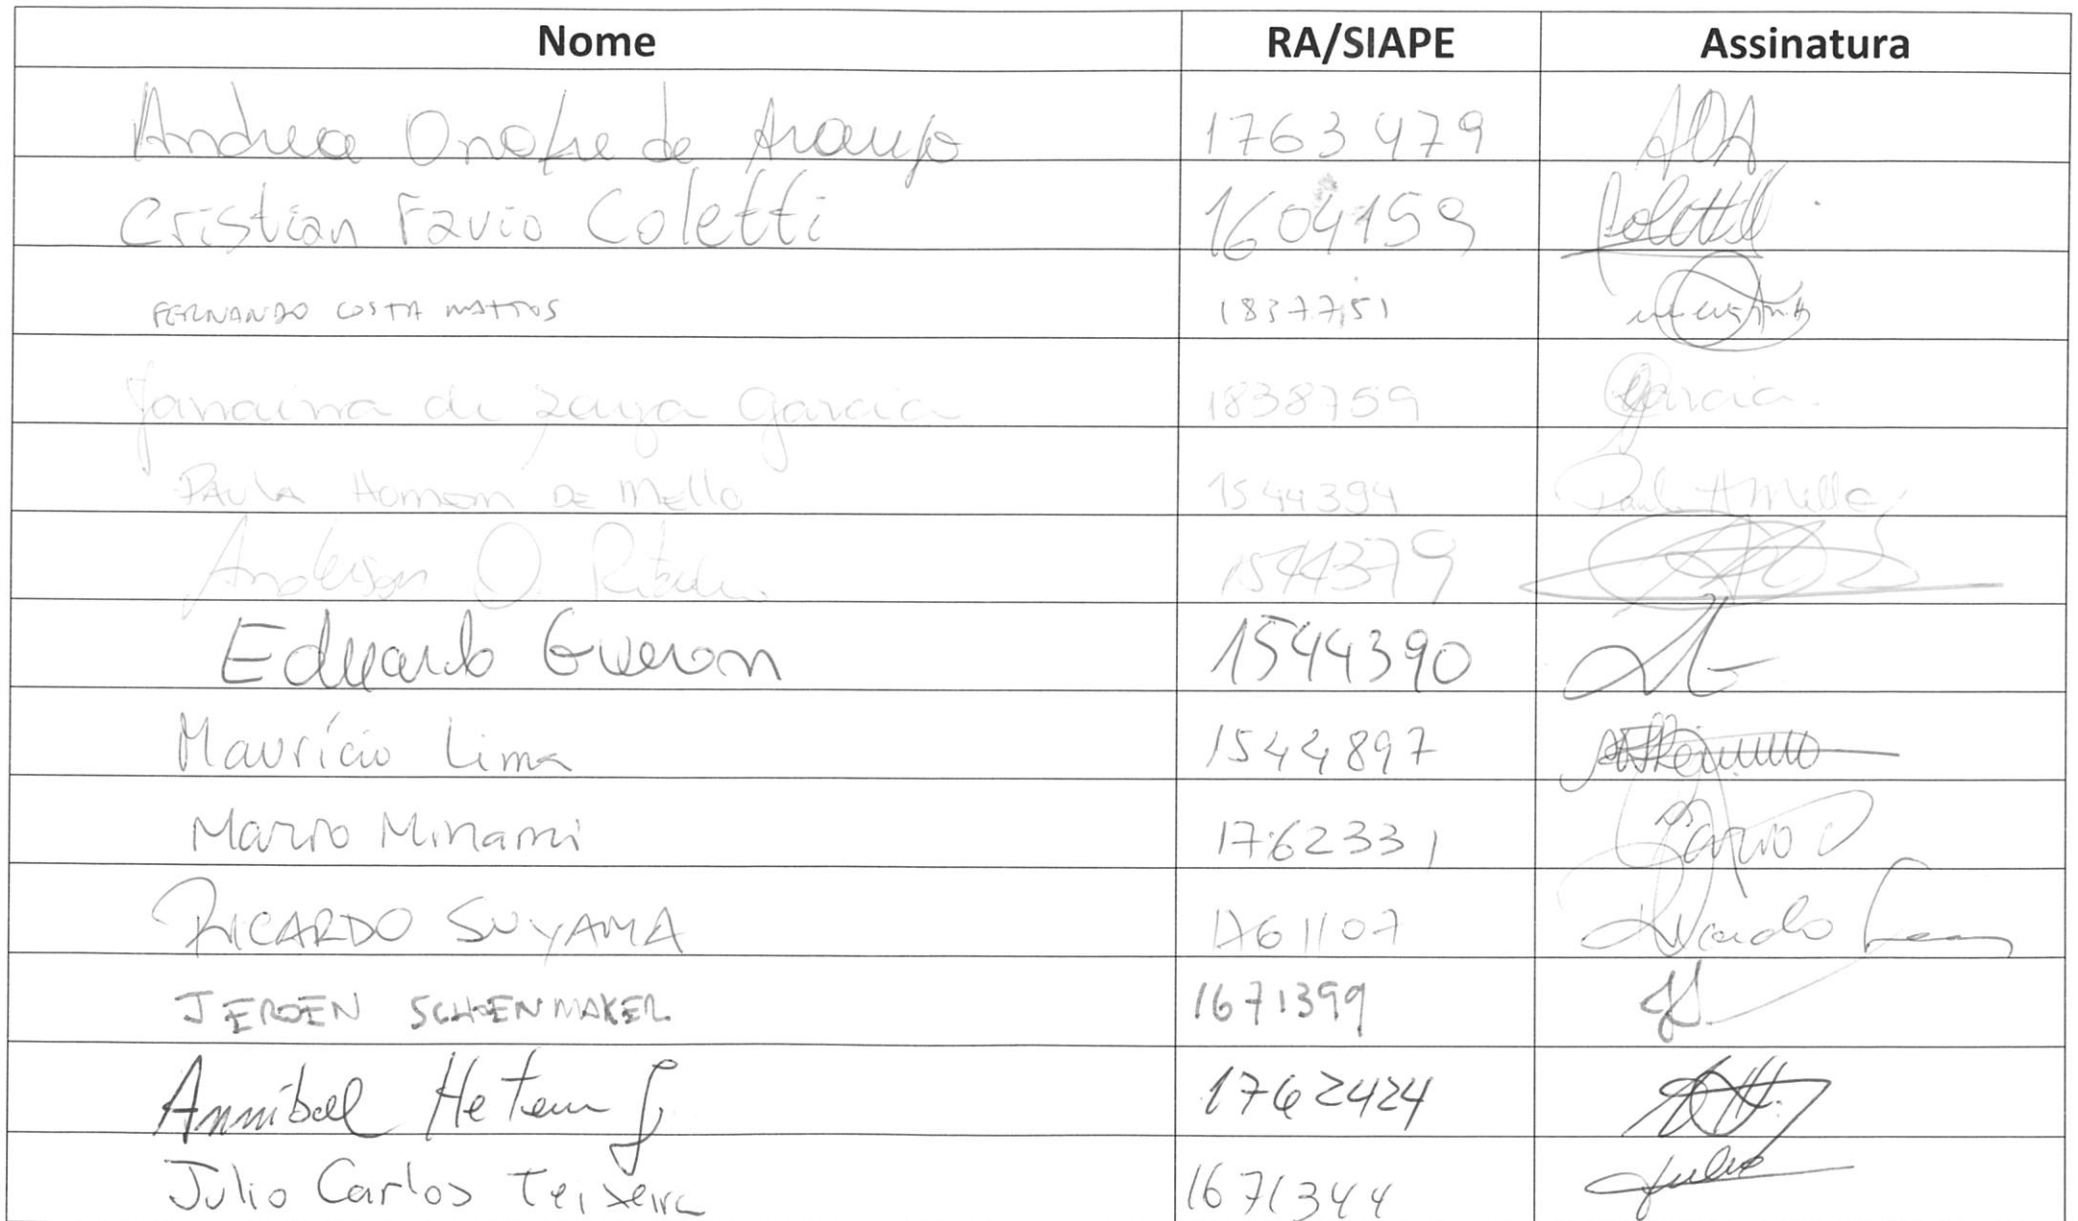 Nome RA/SIAPE Assinatura
Andrea Onofre de Araujo 1763479 AOA
Cristian Favio Coletti 1604159 Coletti
FERNANDO COSTA MATTOS 1837751
Janaina de Souza Garcia 1838759 Garcia
PAULA HOMEM DE MELLO 1544394 Paula H Mello
Anderson O. 1544379
Eduardo Gueron 1544390
Maurício Lima 1544897
Mario Minami 1762331 Mario
RICARDO SUYAMA 1761107 Ricardo
JEROEN SCHOENMAKER 1671399
Annibal Hetem Jr 1762424
Julio Carlos Teixeira 1671344 Julio